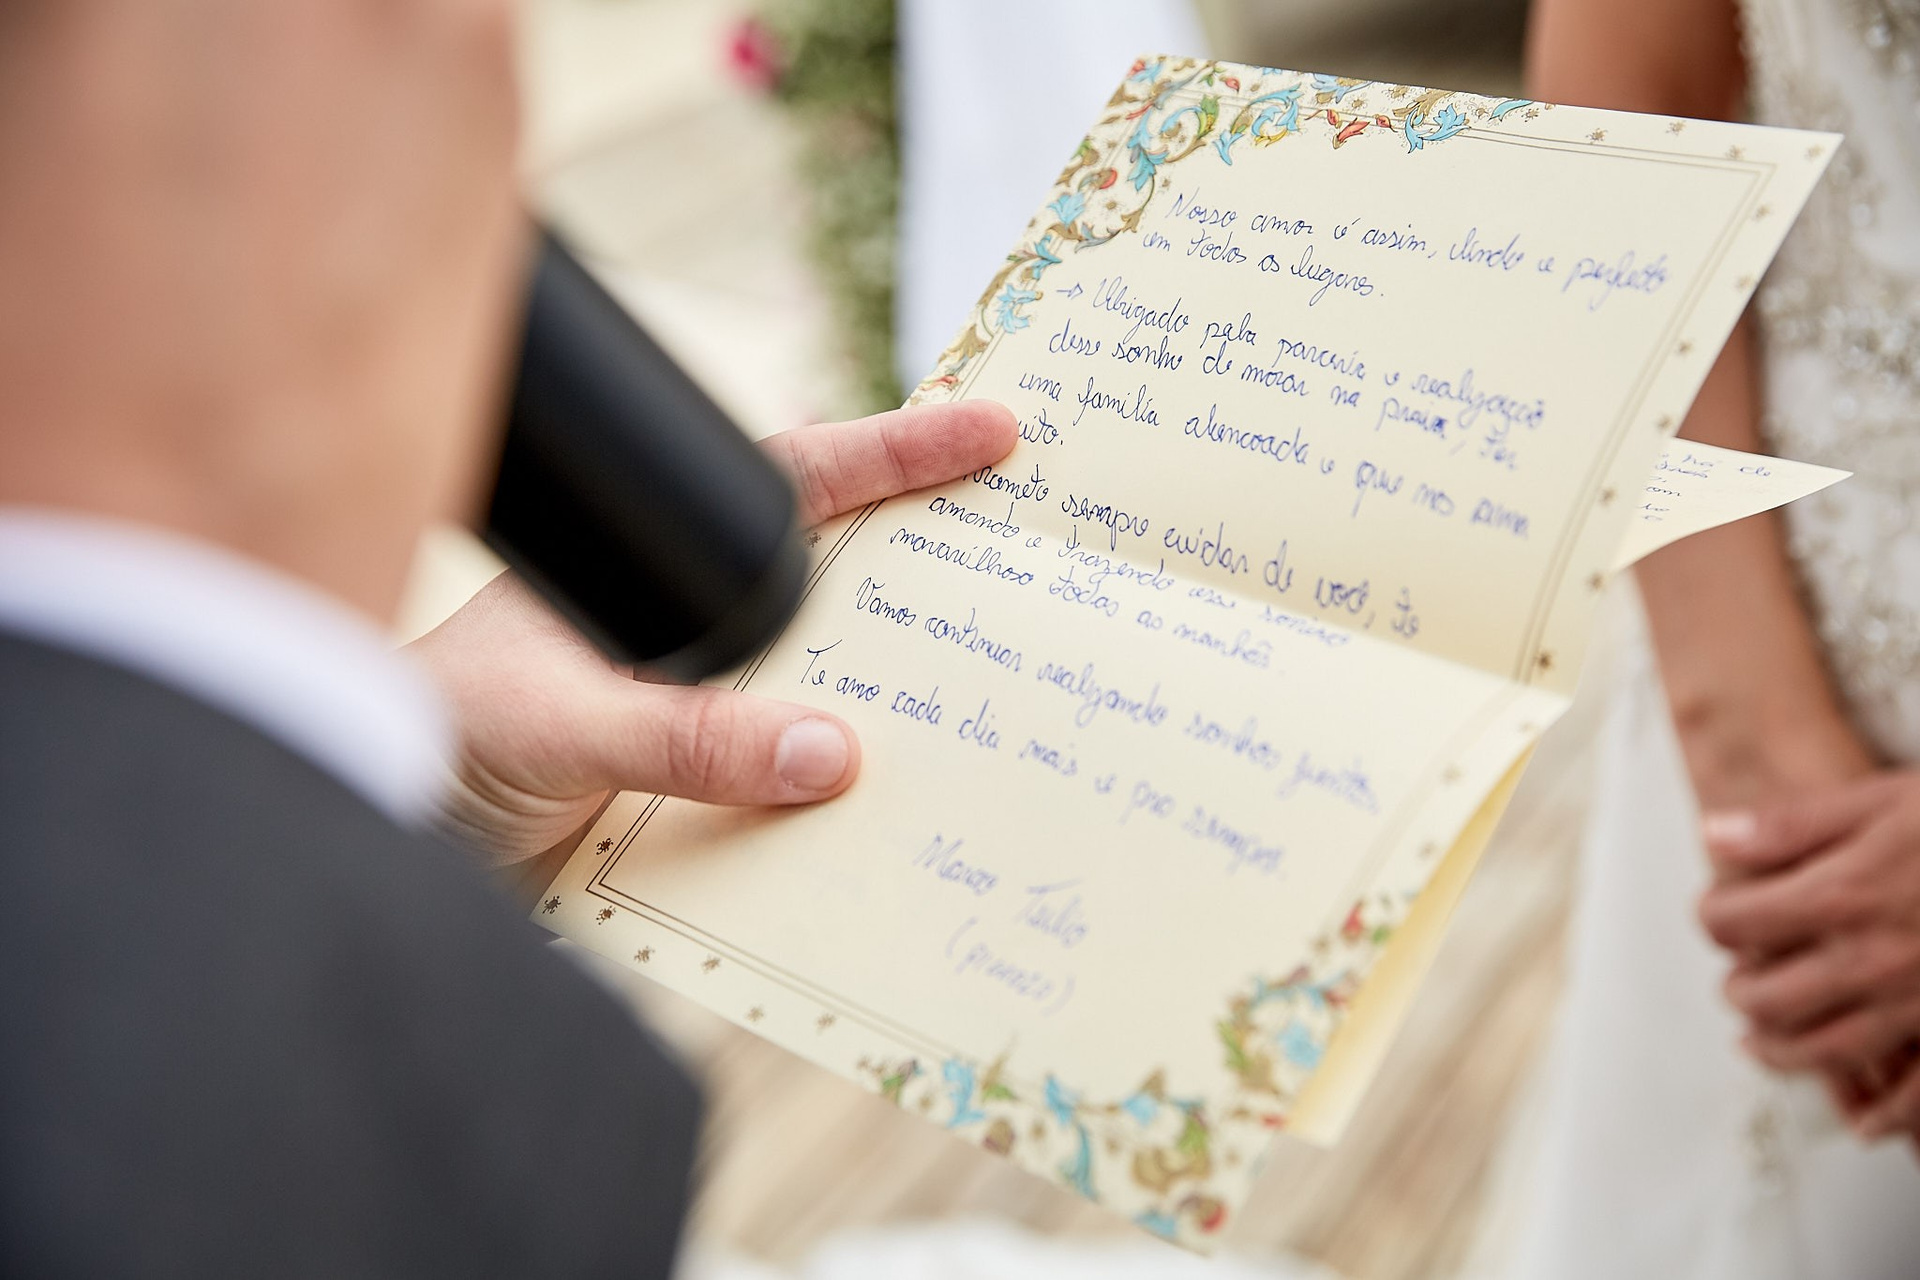 Nosso amor é assim, lindo e perfeito
em todos os lugares.
→ Obrigado pela parceria e realização
desse sonho de morar na praia, ter
uma família abençoada e que nos ama
uito.
rometo sempre cuidar de você, te
amando e trazendo esse sorriso
maravilhoso todas as manhãs.
Vamos continuar realizando sonhos juntos.
Te amo cada dia mais e pra sempre.
Marco Tulio
de
om